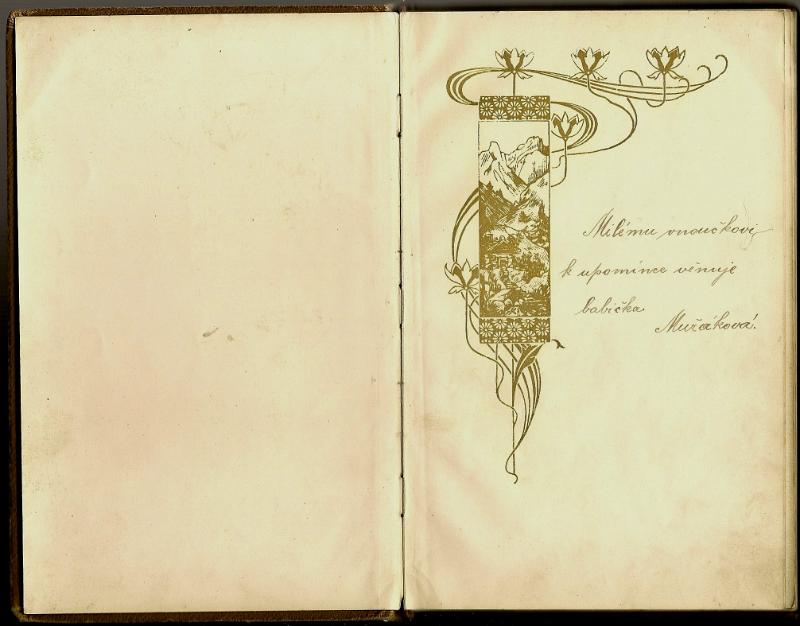 Milému vnoučkovi
k upomínce věnuje
babička
Mužáková.